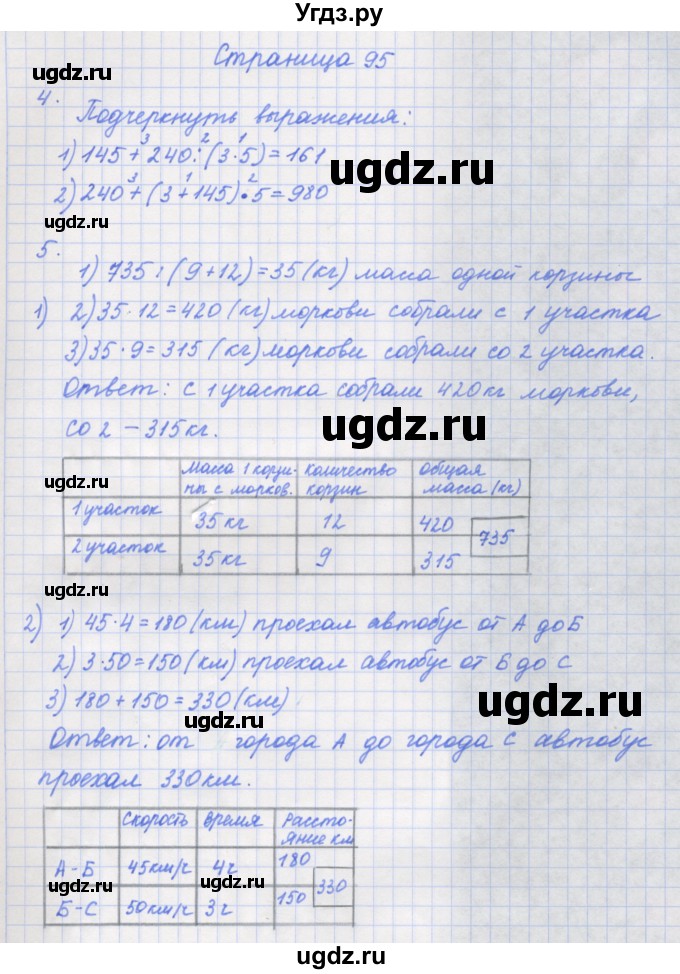 Угдз.ру
Страница 95
ugdz.ru
4.
Подчеркнуть выражения:
3 2 1
1) 145 + 240 : (3 · 5) = 161
ugdz.ru
3 1 2
2) 240 + (3 + 145) · 5 = 980
ugdz.ru
5.
1) 735 : (9 + 12) = 35 (кг) масса одной корзины
1) 2) 35 · 12 = 420 (кг) моркови собрали с 1 участка
3) 35 · 9 = 315 (кг) моркови собрали со 2 участка.
ugdz.ru
Ответ: с 1 участка собрали 420 кг моркови,
со 2 – 315 кг.
ugdz.ru
ugdz.ru
Масса 1 корзи- количество общая
ны с морков. корзин масса (кг)
1 участок 35 кг 12 420
735
2 участок 35 кг 9 315
ugdz.ru
2) 1) 45 · 4 = 180 (км) проехал автобус от А до Б
2) 3 · 50 = 150 (км) проехал автобус от Б до С
ugdz.ru
3) 180 + 150 = 330 (км)
ugdz.ru
Ответ: от города А до города С автобус
проехал 330 км.
Скорость время Рассто-
яние км
А - Б 45 км/ч 4 ч 180
330
ugdz.ru
ugdz.ru
Б - С 50 км/ч 3 ч 150
ugdz.ru
ugdz.ru